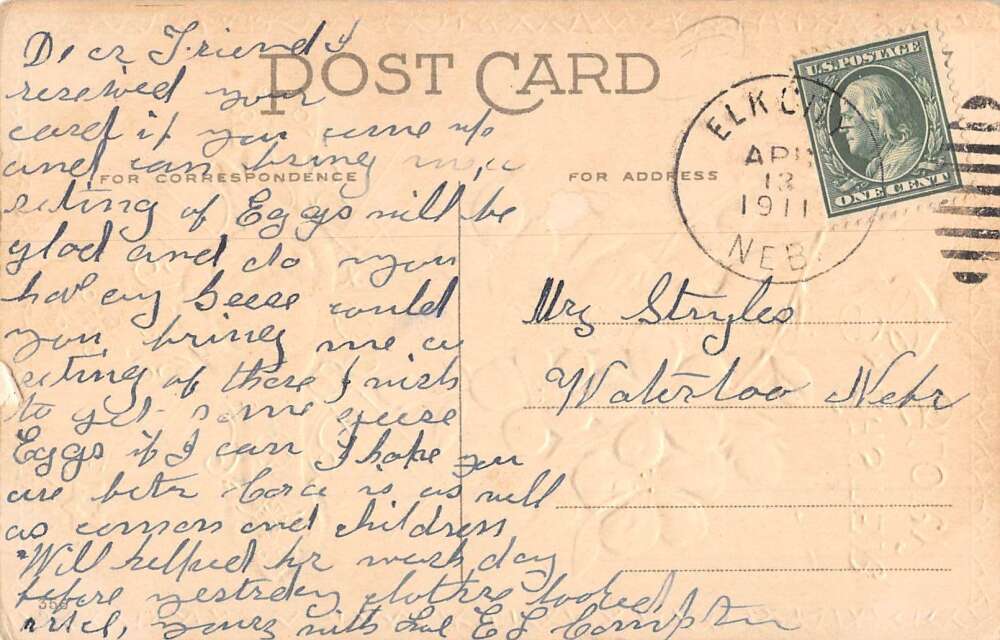 POST CARD
FOR CORRESPONDENCE
FOR ADDRESS
U.S. POSTAGE
ONE CENT
ELK CITY
APR
13
1911
NEB.
Dear Friend I
received your
card if you come up
and can bring me a
seting of Eggs will be
glad and do you
hav eny Geese could
you bring me a
seting of those I wish
to get some geese
Eggs if I can I hope you
are beter Cora is as well
as comon and children
Will helped her wash day
before yestrday clothes looked
nice, yours with Lov E L Compton
Mrs Stryles
Waterloo Nebr
358